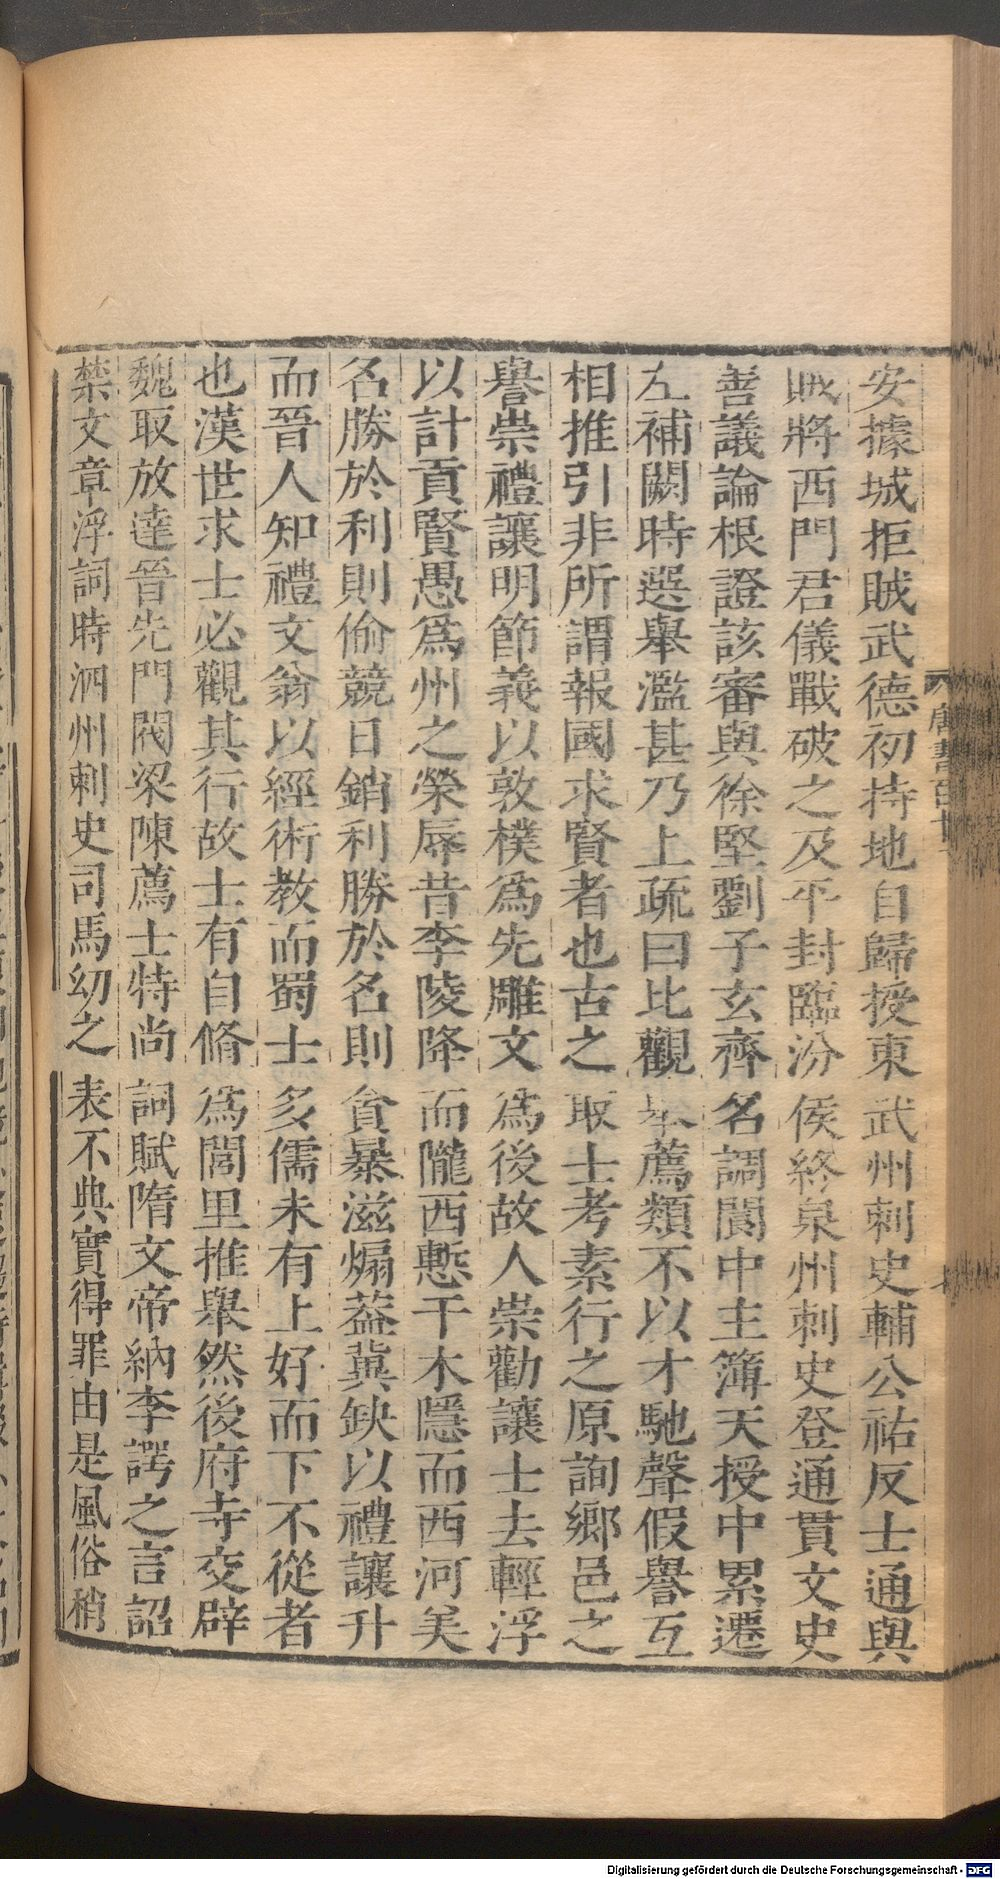 安據城拒賊武德初持地自歸授東武州刺史輔公祏反士通與
賊將西門君儀戰破之及平封臨汾侯終泉州刺史登通貫文史
善議論根證該審與徐堅劉子玄齊名調閬中主簿天授中累遷
左補闕時選舉濫甚乃上疏曰比觀舉薦類不以才馳聲假譽互
相推引非所謂報國求賢者也古之取士考素行之原詢鄉邑之
譽崇禮讓明節義以敦樸爲先雕文爲後故人崇勸讓士去輕浮
以計貢賢愚爲州之榮辱昔李陵降而隴西慙干木隱而西河美
名勝於利則偷競日銷利勝於名則貪暴滋煽葢冀缺以禮讓升
而晉人知禮文翁以經術教而蜀士多儒未有上好而下不從者
也漢世求士必觀其行故士有自脩爲閭里推舉然後府寺交辟
魏取放達晉先門閥梁陳薦士特尚詞賦隋文帝納李諤之言詔
禁文章浮詞時泗州刺史司馬幼之表不典實得罪由是風俗稍
唐書百十
Digitalisierung gefördert durch die Deutsche Forschungsgemeinschaft - DFG